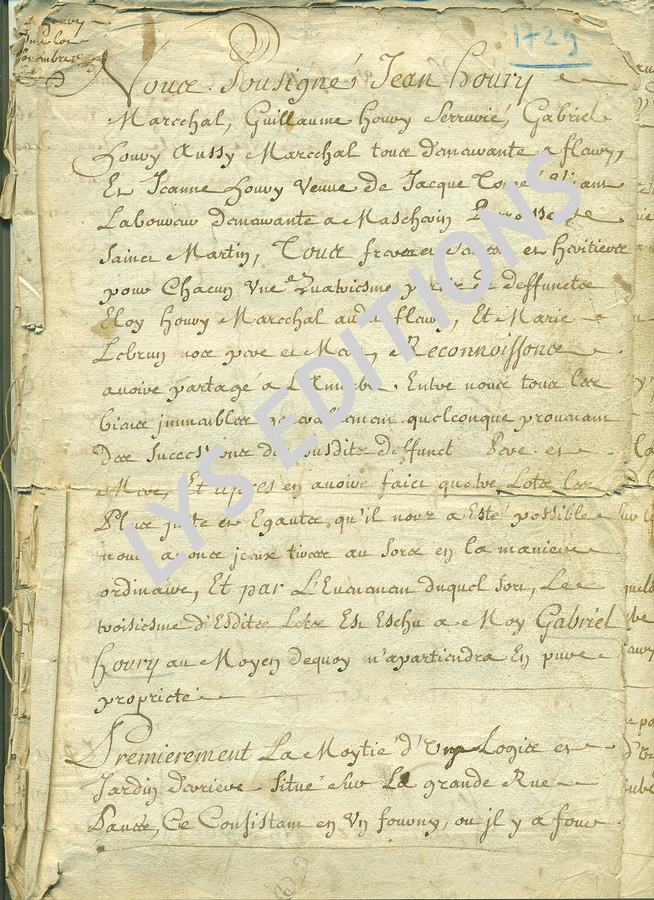 1729
Nous Sousignés Jean houry
Mareschal, Guillaume houry Serrurié, Gabriel
houry Aussy Mareschal tous demeurants a fleury,
Et Jeanne houry Veuve de Jacque
Laboureur demeurante a Maschovin Parroisse de
Sainct Martin, Tous freres et Sœurs et heritiers
pour Chacun Une quatriesme partie de deffuncts
Eloy houry Mareschal audit fleury, Et Marie
Lebrun nos pere et Mere, Reconnoissons
avoire partagé a L'Amiable Entre nous tous les
biens immeubles quelconque provenant
des Successions desusdits deffunct Pere et
Mere, Et apres en avoire faict quatre Lots les
Plus juste et Egaux qu'il nous a Esté possible
nous avons iceux tirés au Sort en la maniere
ordinaire, Et par L'Evenement duquel sort, Le
troisiesme d'Esdits Lots Est Eschu a Moy Gabriel
houry au Moyen dequoy m'apartiendra En pure
proprieté
Premierement La Moytié d'Un Logis et
Jardin derriere Situé Sur La grande Rue
Ce Consistant en Un fourny, ou il y a four
LYS EDITIONS